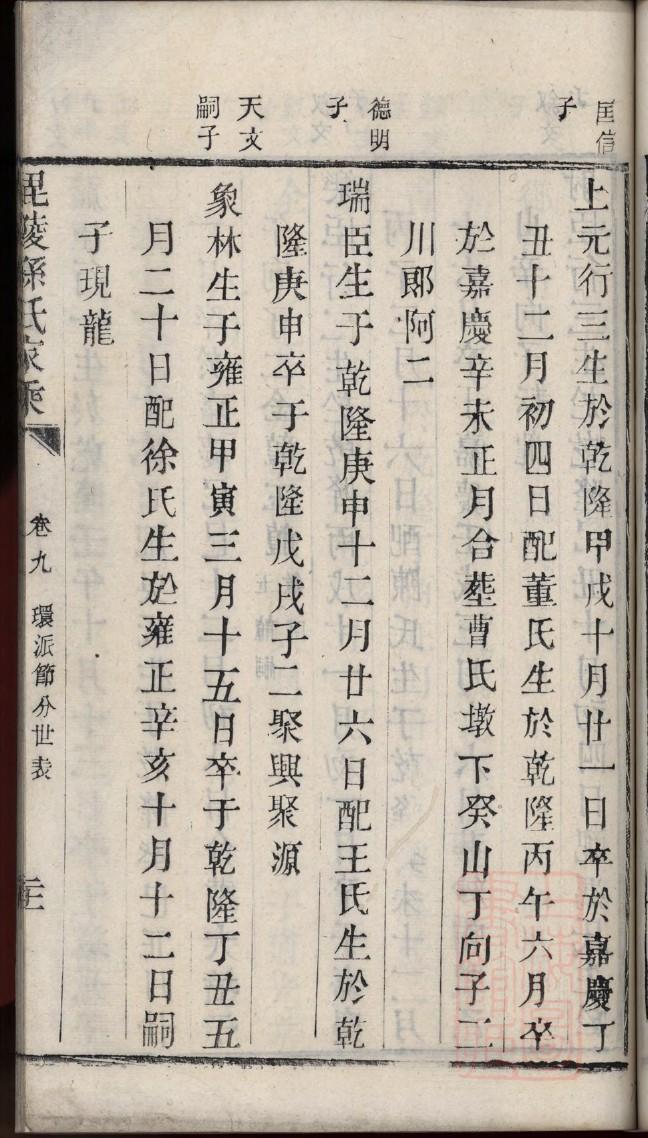 国信
子
上元行三生於乾隆甲戌十月廿一日卒於嘉慶丁
丑十二月初四日配董氏生於乾隆丙午六月卒
於嘉慶辛未正月合塟曹氏墩下癸山丁向子二
川郎阿二
德明
子
瑞臣生于乾隆庚申十二月廿六日配王氏生於乾
隆庚申卒于乾隆戊戌子二聚興聚源
天文
嗣子
象林生于雍正甲寅三月十五日卒于乾隆丁丑五
月二十日配徐氏生於雍正辛亥十月十二日嗣
子現龍
毘陵孫氏家乘
卷九
環派節分世表